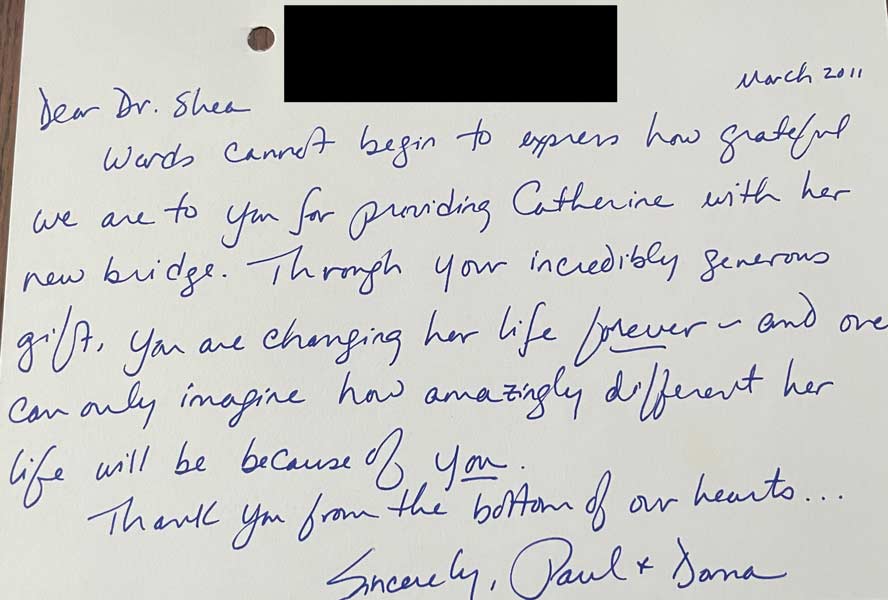 March 2011
Dear Dr. Shea
Words cannot begin to express how grateful
we are to you for providing Catherine with her
new bridge. Through your incredibly generous
gift, you are changing her life forever - and one
can only imagine how amazingly different her
life will be because of you.
Thank you from the bottom of our hearts...
Sincerely, Paul + Dana